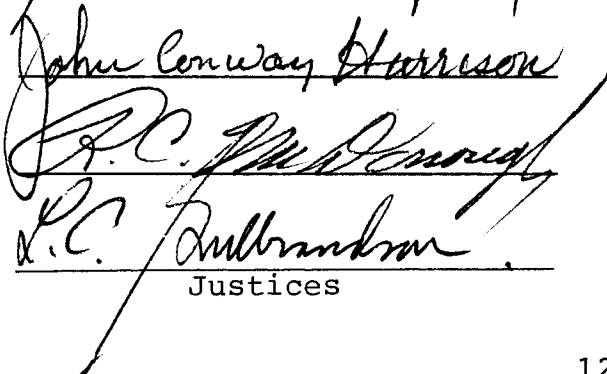 John Conway Harrison
R. C. McDonough
L. C. Gulbrandson
Justices
12